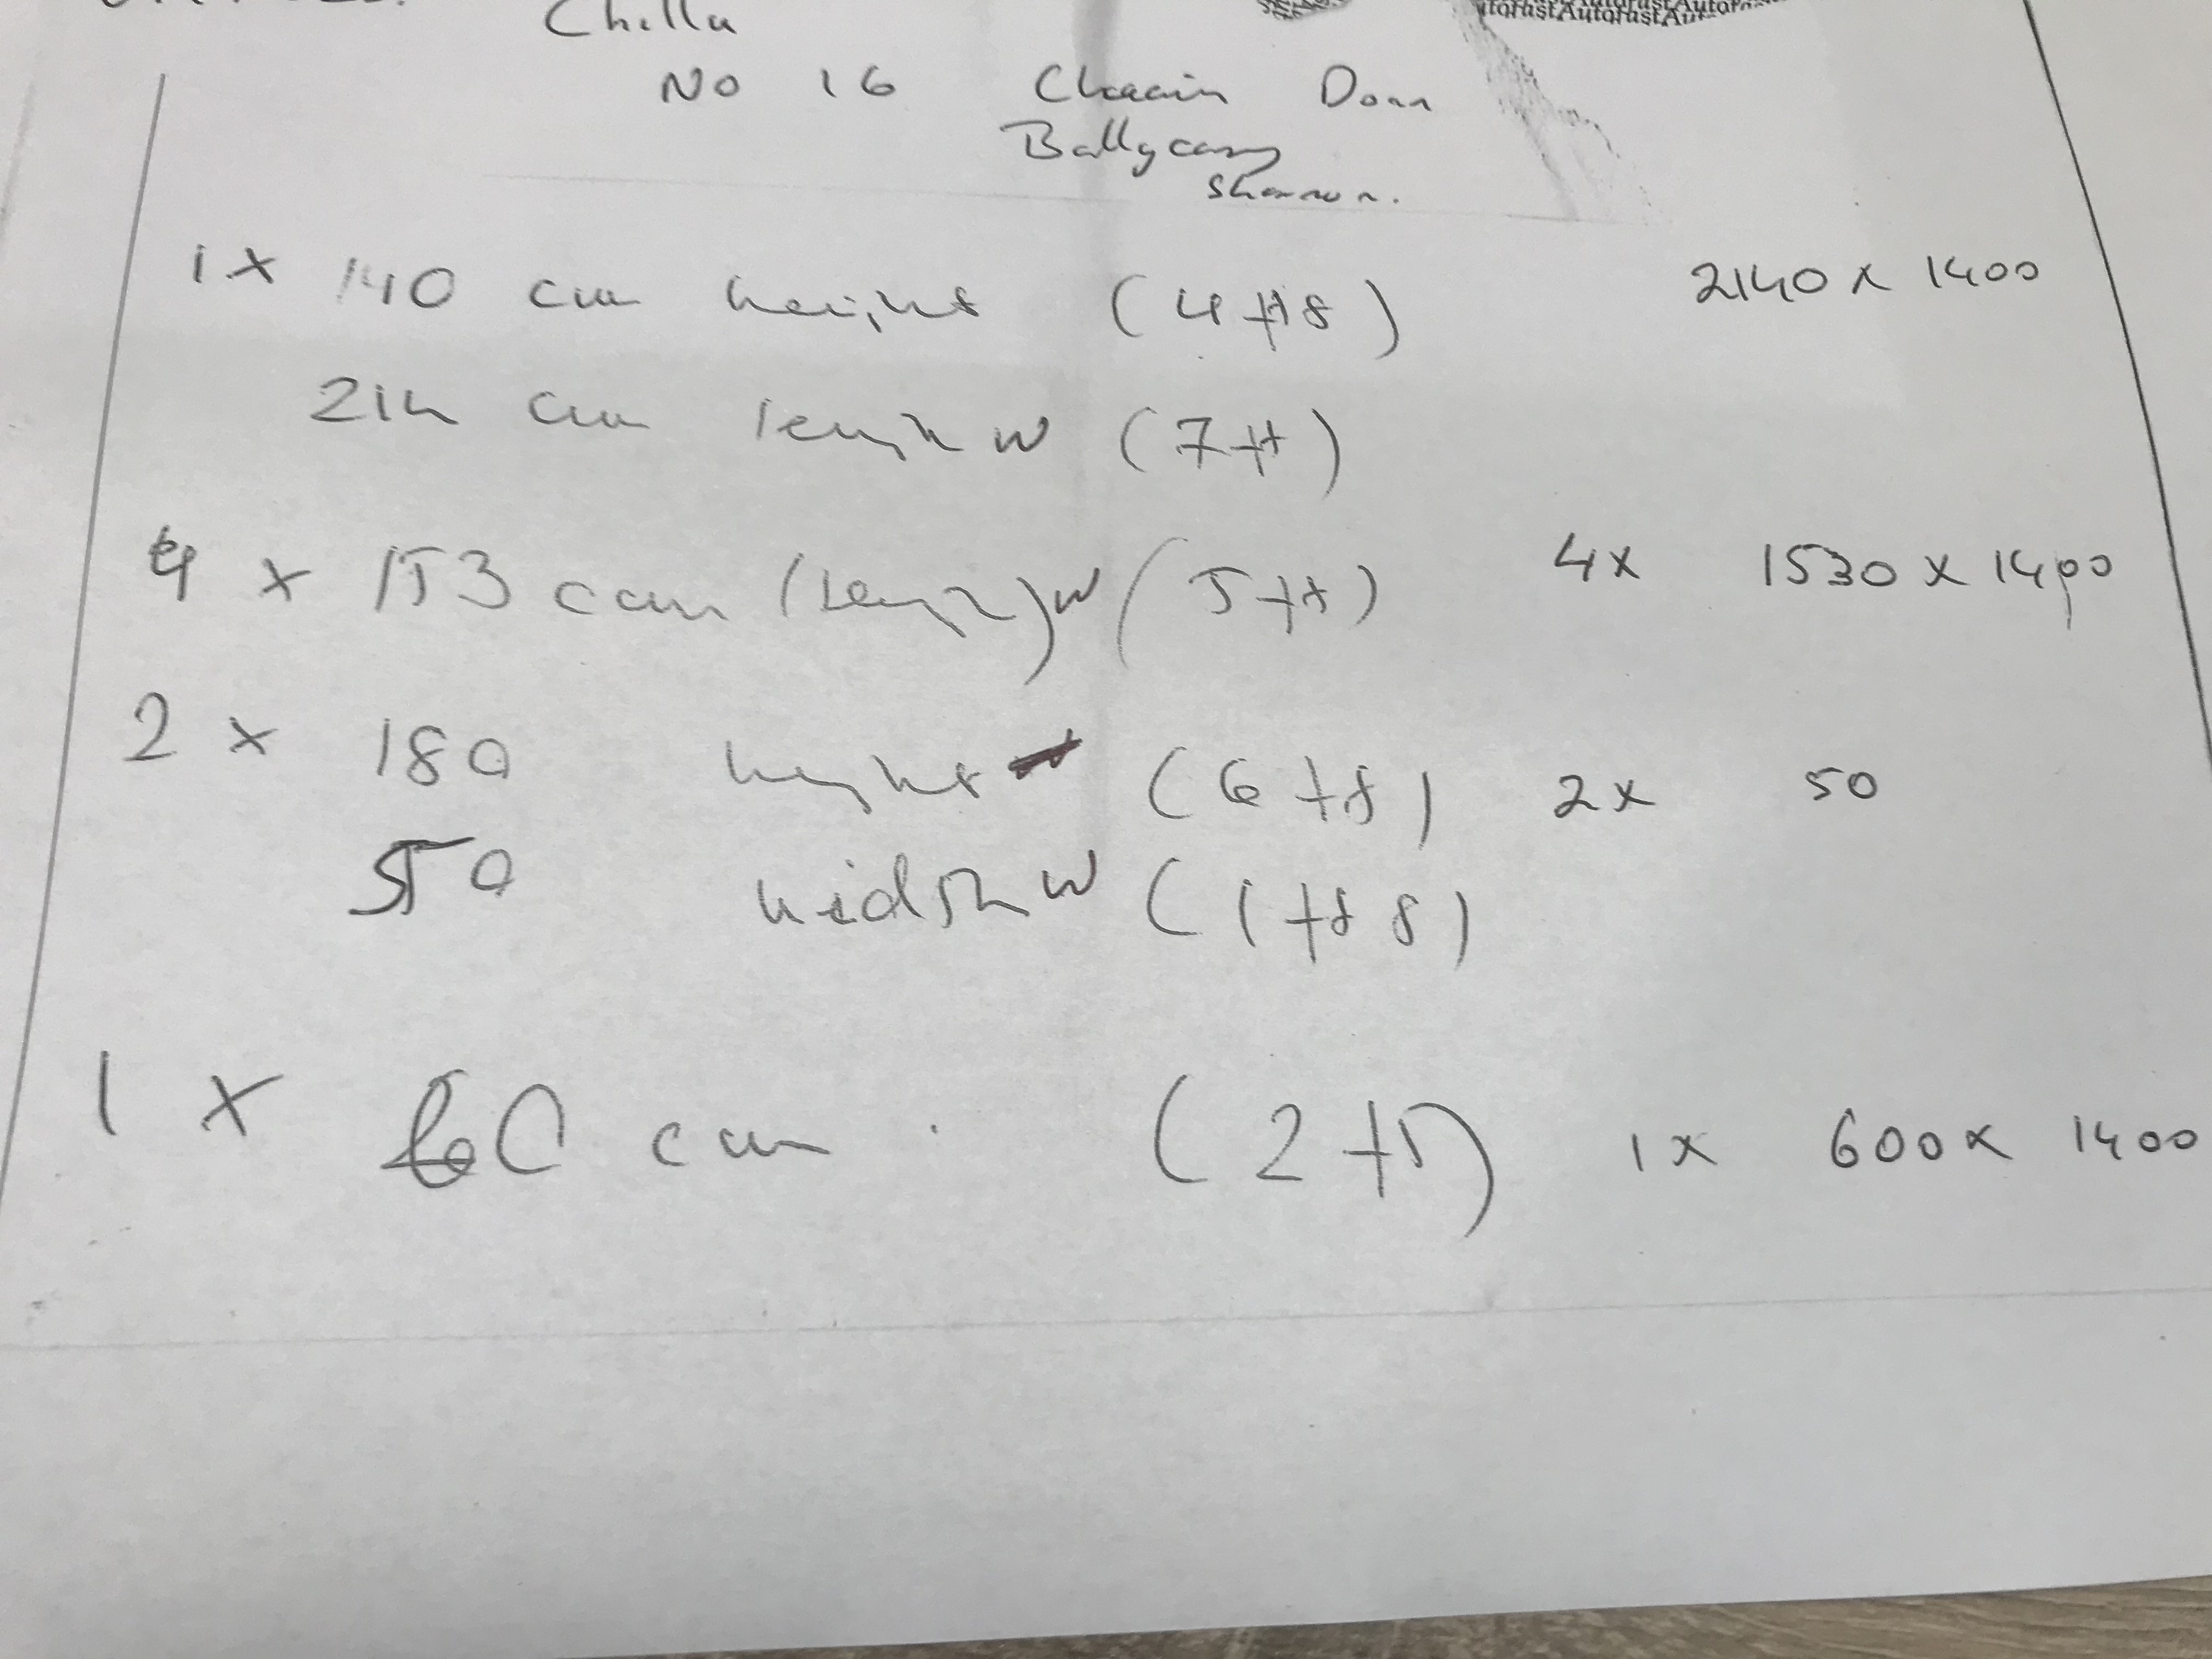 Chilla
No 16 Chaain Donn
Ballycasey
Shannon.
1 x 140 cm height (4 ft 8) 2140 x 1400
214 cm length w (7 ft)
4 x 153 cm (length) w (5 ft) 4x 1530 x 1400
2 x 180 height (6 ft) 2x 50
50 width w (1 ft 8)
1 x 60 cm (2 ft) 1x 600 x 1400